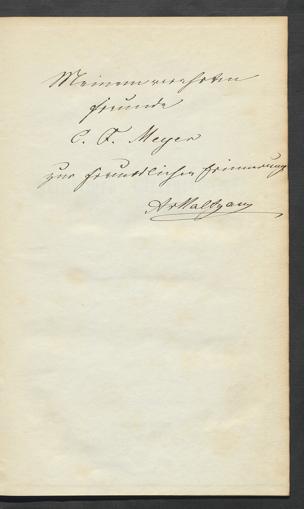 Meinem verehrten
Freunde
C. F. Meyer
zur freundlichen Erinnerung